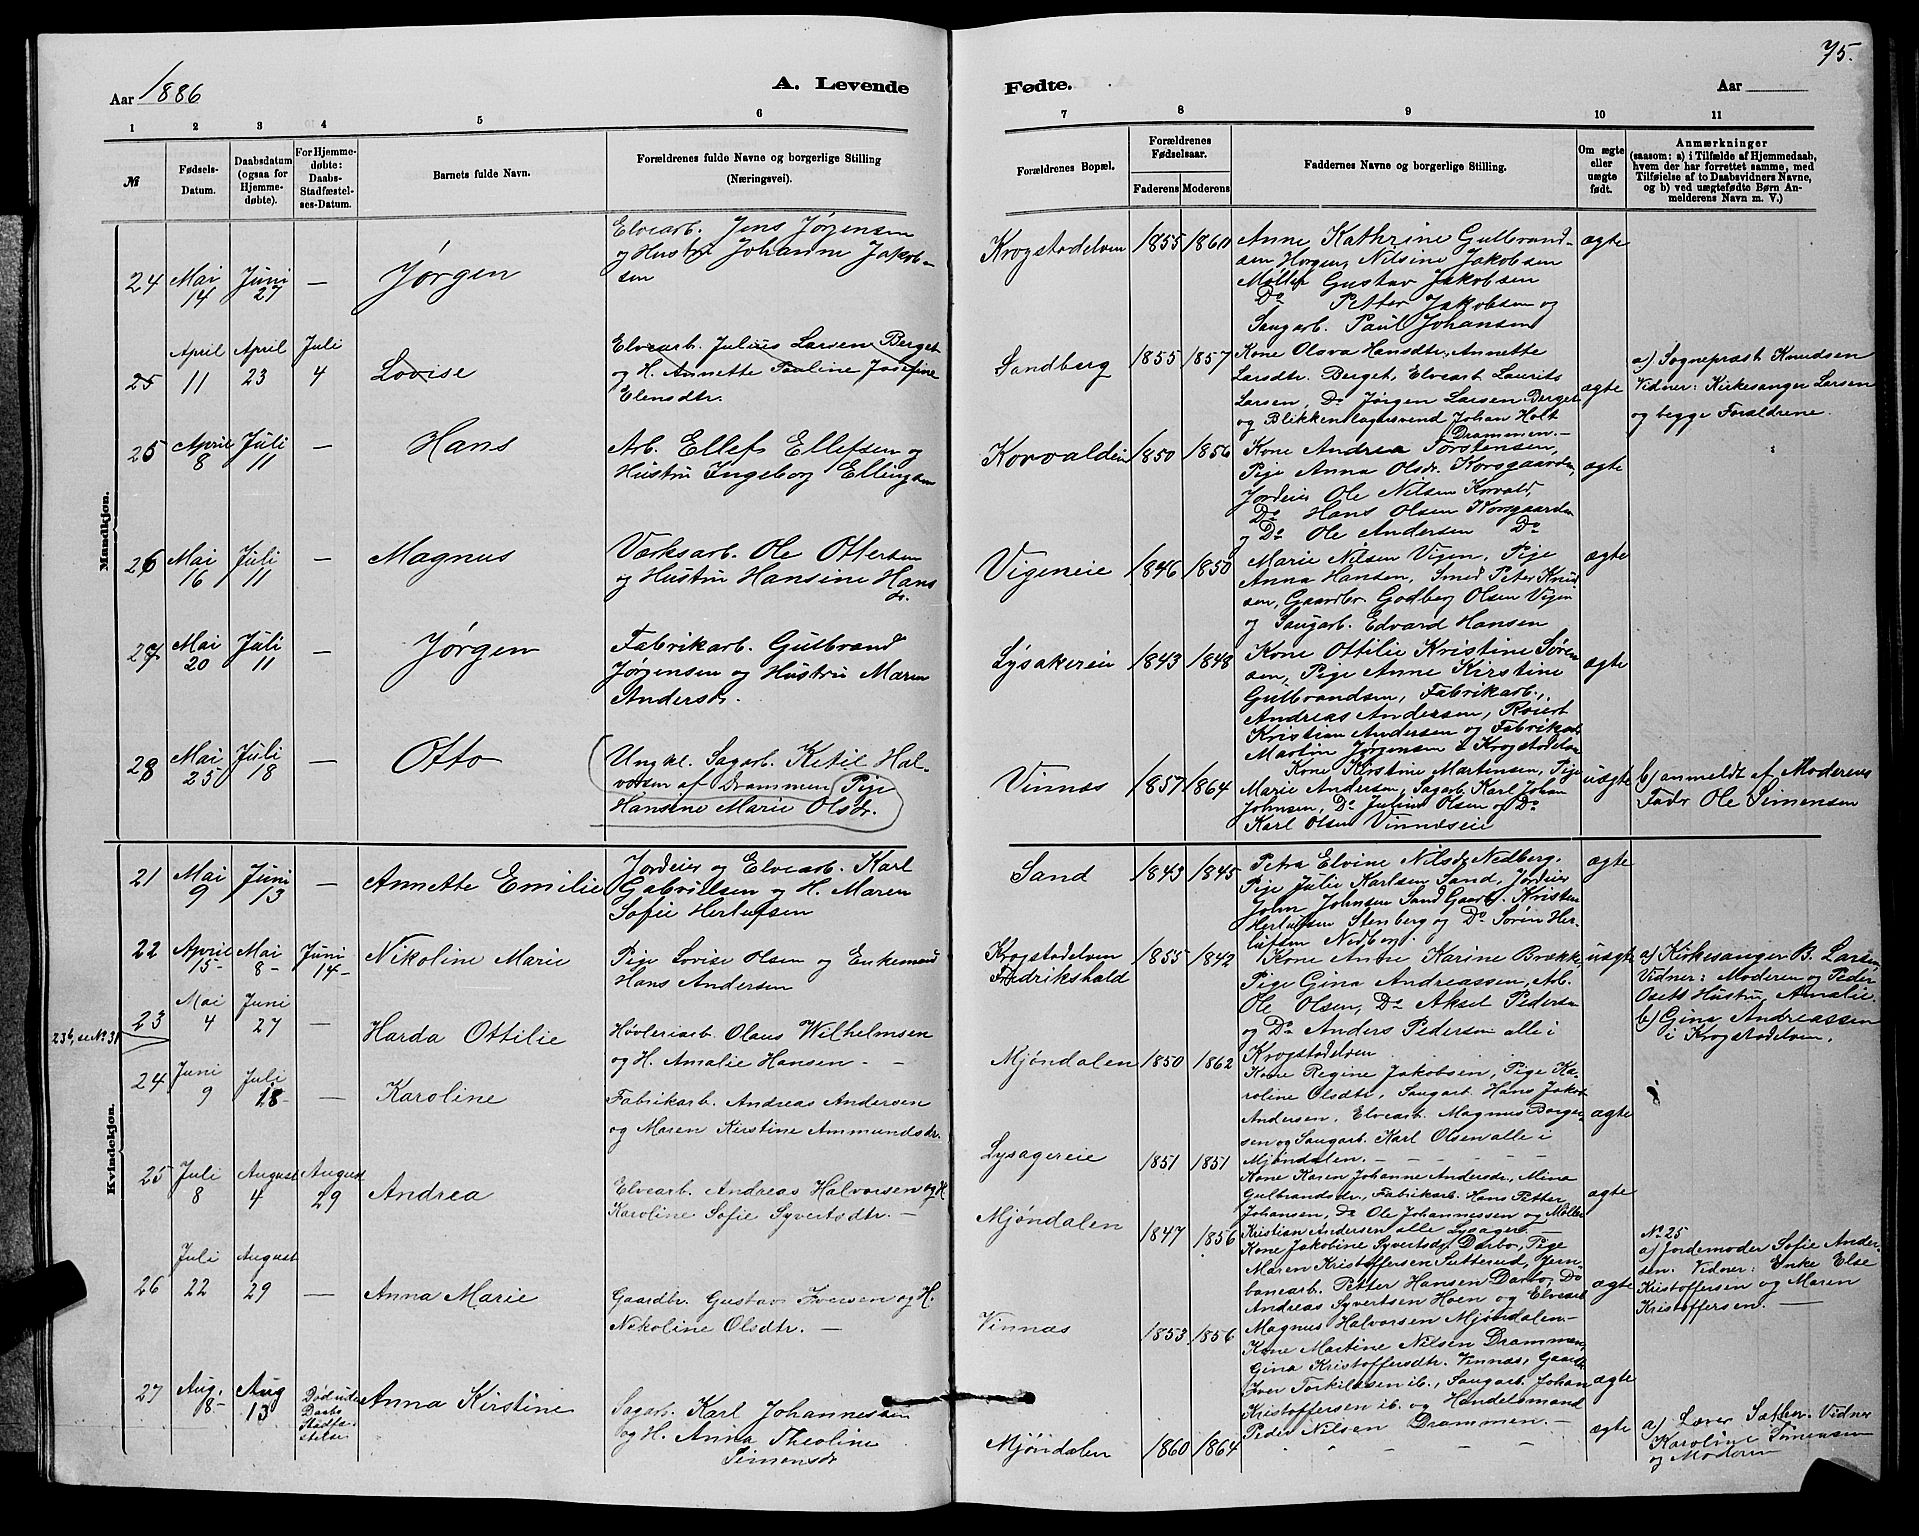 75.
Aar 1886
A. Levende
Fødte.
Aar
1 2 3 4 5 6 7 8 9 10 11
№
Fødsels-
Datum.
Daabsdatum
(ogsaa for
Hjemme-
døbte).
For Hjemme-
døbte:
Daabs-
Stadfæstel-
ses-Datum.
Barnets fulde Navn.
Forældrenes fulde Navne og borgerlige Stilling
(Næringsvei).
Forældrenes Bopæl.
Forældrenes
Fødselsaar.
Faderens Moderens
Faddernes Navne og borgerlige Stilling.
Om ægte
eller
uægte
født.
Anmærkninger
(saasom: a) i Tilfælde af Hjemmedaab,
hvem der har forrettet samme, med
Tilføielse af to Daabsvidners Navne,
og b) ved uægtefødte Børn An-
melderens Navn m. V.)
Mandkjøn.
24 Mai 14 Juni 27 — Jørgen
Elvearb. Jens Jørgensen
og Hustru Johanne Jakob-
sen
Krogstadelven 1855 1860
Anne Kathrine Gulbrand-
sen Horgen, Nilsine Jakobsen
Møller Gustav Jakobsen
Do Petter Jakobsen og
Saugarb. Paul Johansen
ægte
25 April 11 April 23 Juli 4 Lovise
Elvearb. Julius Larsen Berget
og H. Annette Pauline Josefine
Elensdtr.
Sandberg 1855 1857
Kone Olava Hansdtr, Annette
Larsdtr. Berget, Elvearb Laurits
Larsen, Do Jørgen Larsen Berget
og Blikkenslagersvend Johan Holt
Drammen.—
ægte
a) Sognepræst Knudsen
Vidner: Kirkesanger Larsen
og begge Forældrene.
25 April 8 Juli 11 — Hans
Arb. Ellef Ellefsen og
Hustru Ingeborg Ellingsen
Korvalden 1850 1856
Kone Andrea Torstensen,
Pige Anna Olsdr. Korsgaarden,
Jordeier Ole Nilsen Korvald,
Do Hans Olsen Korsgaarden
og Do Ole Andersen Do
ægte
26 Mai 16 Juli 11 — Magnus
Værksarb. Ole Ottersen
og Hustru Hansine Hans
dr.
Vigeneie 1846 1850
Marie Nilsen Vigen, Pige
Anna Hansen, Smed Peter Knud
sen, Gaardbr. Godberg Olsen Vigen
og Saugarb. Edvard Hansen
ægte
27 Mai 20 Juli 11 — Jørgen
Fabrikarb. Gulbrand
Jørgensen og Hustru Maren
Andersdr.
Lysakereie 1843 1848
Kone Ottilie Kristine Søren
sen, Pige Anne Kirstine
Gulbrandsen, Fabrikarb.,
Andreas Andersen,
Kristian Andersen og Fabrikarb
Martin Jørgensen Krogstadelven
ægte
28 Mai 25 Juli 18 — Otto
Ungkl. Sagarb. Ketil Hal-
vorsen af Drammen, Pige
Hansine Marie Olsdr.
Vinnæs 1857 1864
Kone Kirstine Martinsen, Pige
Marie Andersen, Sagarb. Karl Johan
Johnsen, Do Julius Olsen og Do
Karl Olsen Vinnæseie
uægte
b) anmeldt af Moderens
Fader Ole Simensen
Kvindekjøn.
21 Mai 9 Juni 13 — Annette Emilie
Jordeier og Elvearb. Karl
Gabrielsen og H. Maren
Sofie Herlufsen
Sand 1843 1845
Petra Elvine Nilsdr Nedberg.
Pige Julie Karlsen Sand, Jordeier
John Johnsen Sand Gaarbr. Kristen
Herlufsen Stenberg og Do Søren Her-
lufsen Nedberg.
ægte
22 April 15 Mai 8 Juni 14 Nikoline Marie
Pige Lovise Olsen og Enkemand
Hans Andersen
Krogstadelven
Fredrikshald 1855 1842
Kone Anne Karine Brække
Pige Gina Andreassen, Arb.
Ole Olsen, Do Aksel Pedersen
og Do Anders Pedersen alle i
Krogstadelven
uægte
a) Kirkesanger B. Larsen
Vidner: Moderen og Peder
Osets Hustru Amalie.
b) Gina Andreassen
i Krogstadelven.
23b, se No 31
23 Mai 4 Juni 27 — Harda Ottilie
Høvleriarb. Olaus Wilhelmsen
og H. Amalie Hansen — —
Mjøndalen 1850 1862
Kone Regine Jakobsen, Pige Ka-
roline Olsdtr, Saugarb. Hans Jakob
Andersen, Elvearb. Magnus Borger-
sen og Saugarb. Karl Olsen alle i
Mjøndalen. — — —
ægte
24 Juni 9 Juli 18 — Karoline
Fabrikarb. Andreas Andersen
og Maren Kirstine Ammundsdr.
Lysagereie 1851 1851
Kone Karen Johanne Andersdr, Mina
Gulbrandsdr, Fabrikarb. Hans Petter
Johansen, Do Ole Johannessen og Møller
Kristian Andersen alle Lysager —
ægte
25 Juli 8 August 4 August 29 Andrea
Elvearb. Andreas Halvorsen og H
Karoline Sofie Syvertsdtr. —
Mjøndalen 1847 1856
Kone Jakobine Syvertsdr Darbo, Pige
Maren Kristoffersen Sutterud, Jern-
banearb. Petter Hansen Darbo, Do
Andreas Syvertsen Hoen og Elvearb
Magnus Halvorsen Mjøndalen.—
ægte
No 25
a) Jordemoder Sofie Ander-
sen. Vidner: Enke Else
Kristoffersen og Maren
Kristoffersen. —
26 Juli 22 August 29 — Anna Marie
Gaardbr. Gustav Iversen og H.
Nikoline Olsdtr. —
Vinnæs 1853 1856
Kone Martine Nilsen Drammen,
Gina Kristoffersdtr. Vinnæs, Gaardbr
Iver Torkildsen ib., Saugarb. Johan
Kristoffersen ib. og Handelsmand
Peder Nilsen Drammen. —
ægte
27 Aug. 8 Aug 13 Død uden
Daabs
Stadfæ
stelse
Anna Kirstine
Sagarb. Karl Johannessen
og H. Anna Theoline
Simensdr
Mjøndalen 1860 1864
ægte
a) Lærer Sæther. Vidner
Karoline Simensen
og Moderen